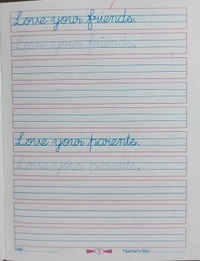 Love your friends.
Love your friends.
Love your parents.
Love your parents.
Date
Teacher's Sign